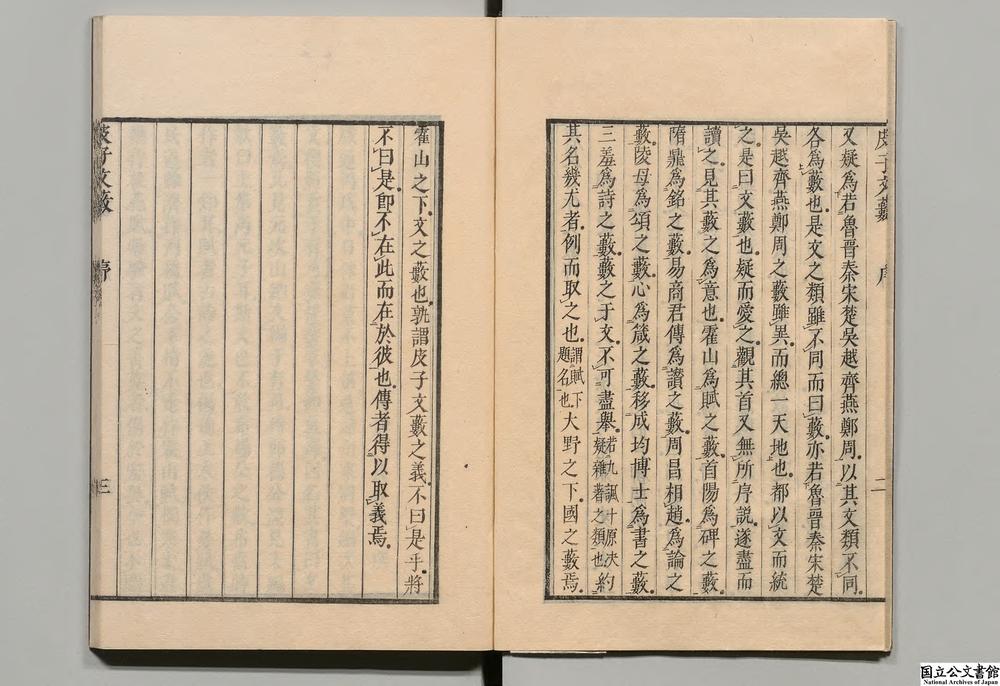 皮子文藪 序 二
又疑爲若魯晉秦宋楚吳越齊燕鄭周以其文類不同
各爲藪也是文之類雖不同而曰藪亦若魯晉秦宋楚
吳越齊燕鄭周之藪雖異而總一天地也都以文而統
之是曰文藪也疑而愛之觀其首又無所序說遂盡而
讀之見其藪之爲意也霍山爲賦之藪首陽爲碑之藪
隋鼎爲銘之藪易商君傳爲讚之藪周昌相趙爲論之
藪陵母爲頌之藪心爲箴之藪移成均博士爲書之藪
三羞爲詩之藪藪之于文不可盡舉若九諷十原決疑雜著之類也約
其名幾尤者例而取之也謂賦下題名也大野之下國之藪焉
霍山之下文之藪也孰謂皮子文藪之義不曰是乎將
不曰是卽不在此而在於彼也傳者得以取義焉
皮子文藪 序 三
国立公文書館
National Archives of Japan